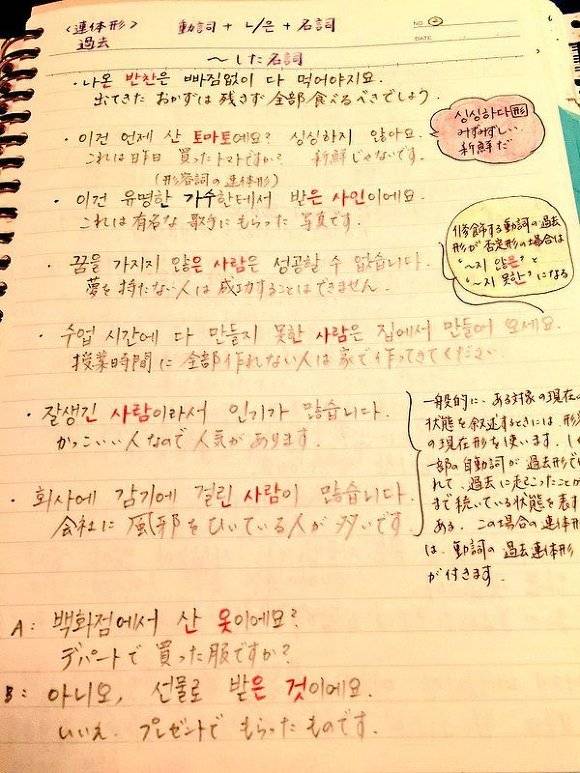 <連体形> 動詞 + ㄴ/은 + 名詞
NO.
DATE
過去
〜した名詞
・나온 반찬은 빠짐없이 다 먹어야지요.
出てきた おかずは 残さず 全部 食べるべきでしょう.
・이건 언제 산 토마토예요? 싱싱하지 않아요.
これは 昨日 買ったトマトですか? 新鮮じゃないです.
싱싱하다 形
みずみずしい
新鮮だ
(形容詞の連体形)
・이건 유명한 가수한테서 받은 사인이에요.
これは 有名な 歌手に もらった 写真です.
・꿈을 가지지 않은 사람은 성공할 수 없습니다.
夢を 持たない 人は 成功することは できません.
修飾する動詞の過去
形が否定形の場合は
"~지 않은" と
"~지 못한" になる
・수업 시간에 다 만들지 못한 사람은 집에서 만들어 오세요.
授業時間に 全部 作れない 人は 家で 作ってきてください
・잘생긴 사람이라서 인기가 많습니다.
かっこいい 人なので 人気が あります.
・회사에 감기에 걸린 사람이 많습니다.
会社に 風邪をひいている 人が 多いです
一般的に、ある対象の現在の
状態を叙述するときには、形
の現在形を使います. し
一部の自動詞が 過去形で
れて、過去に起こったことが
まで続いている状態を表す
ある. この場合の連体形
は、動詞の 過去連体形
が付きます.
A: 백화점에서 산 옷이에요?
デパートで 買った 服ですか?
B: 아니오, 선물로 받은 것이에요.
いいえ. プレゼントで もらった ものです.